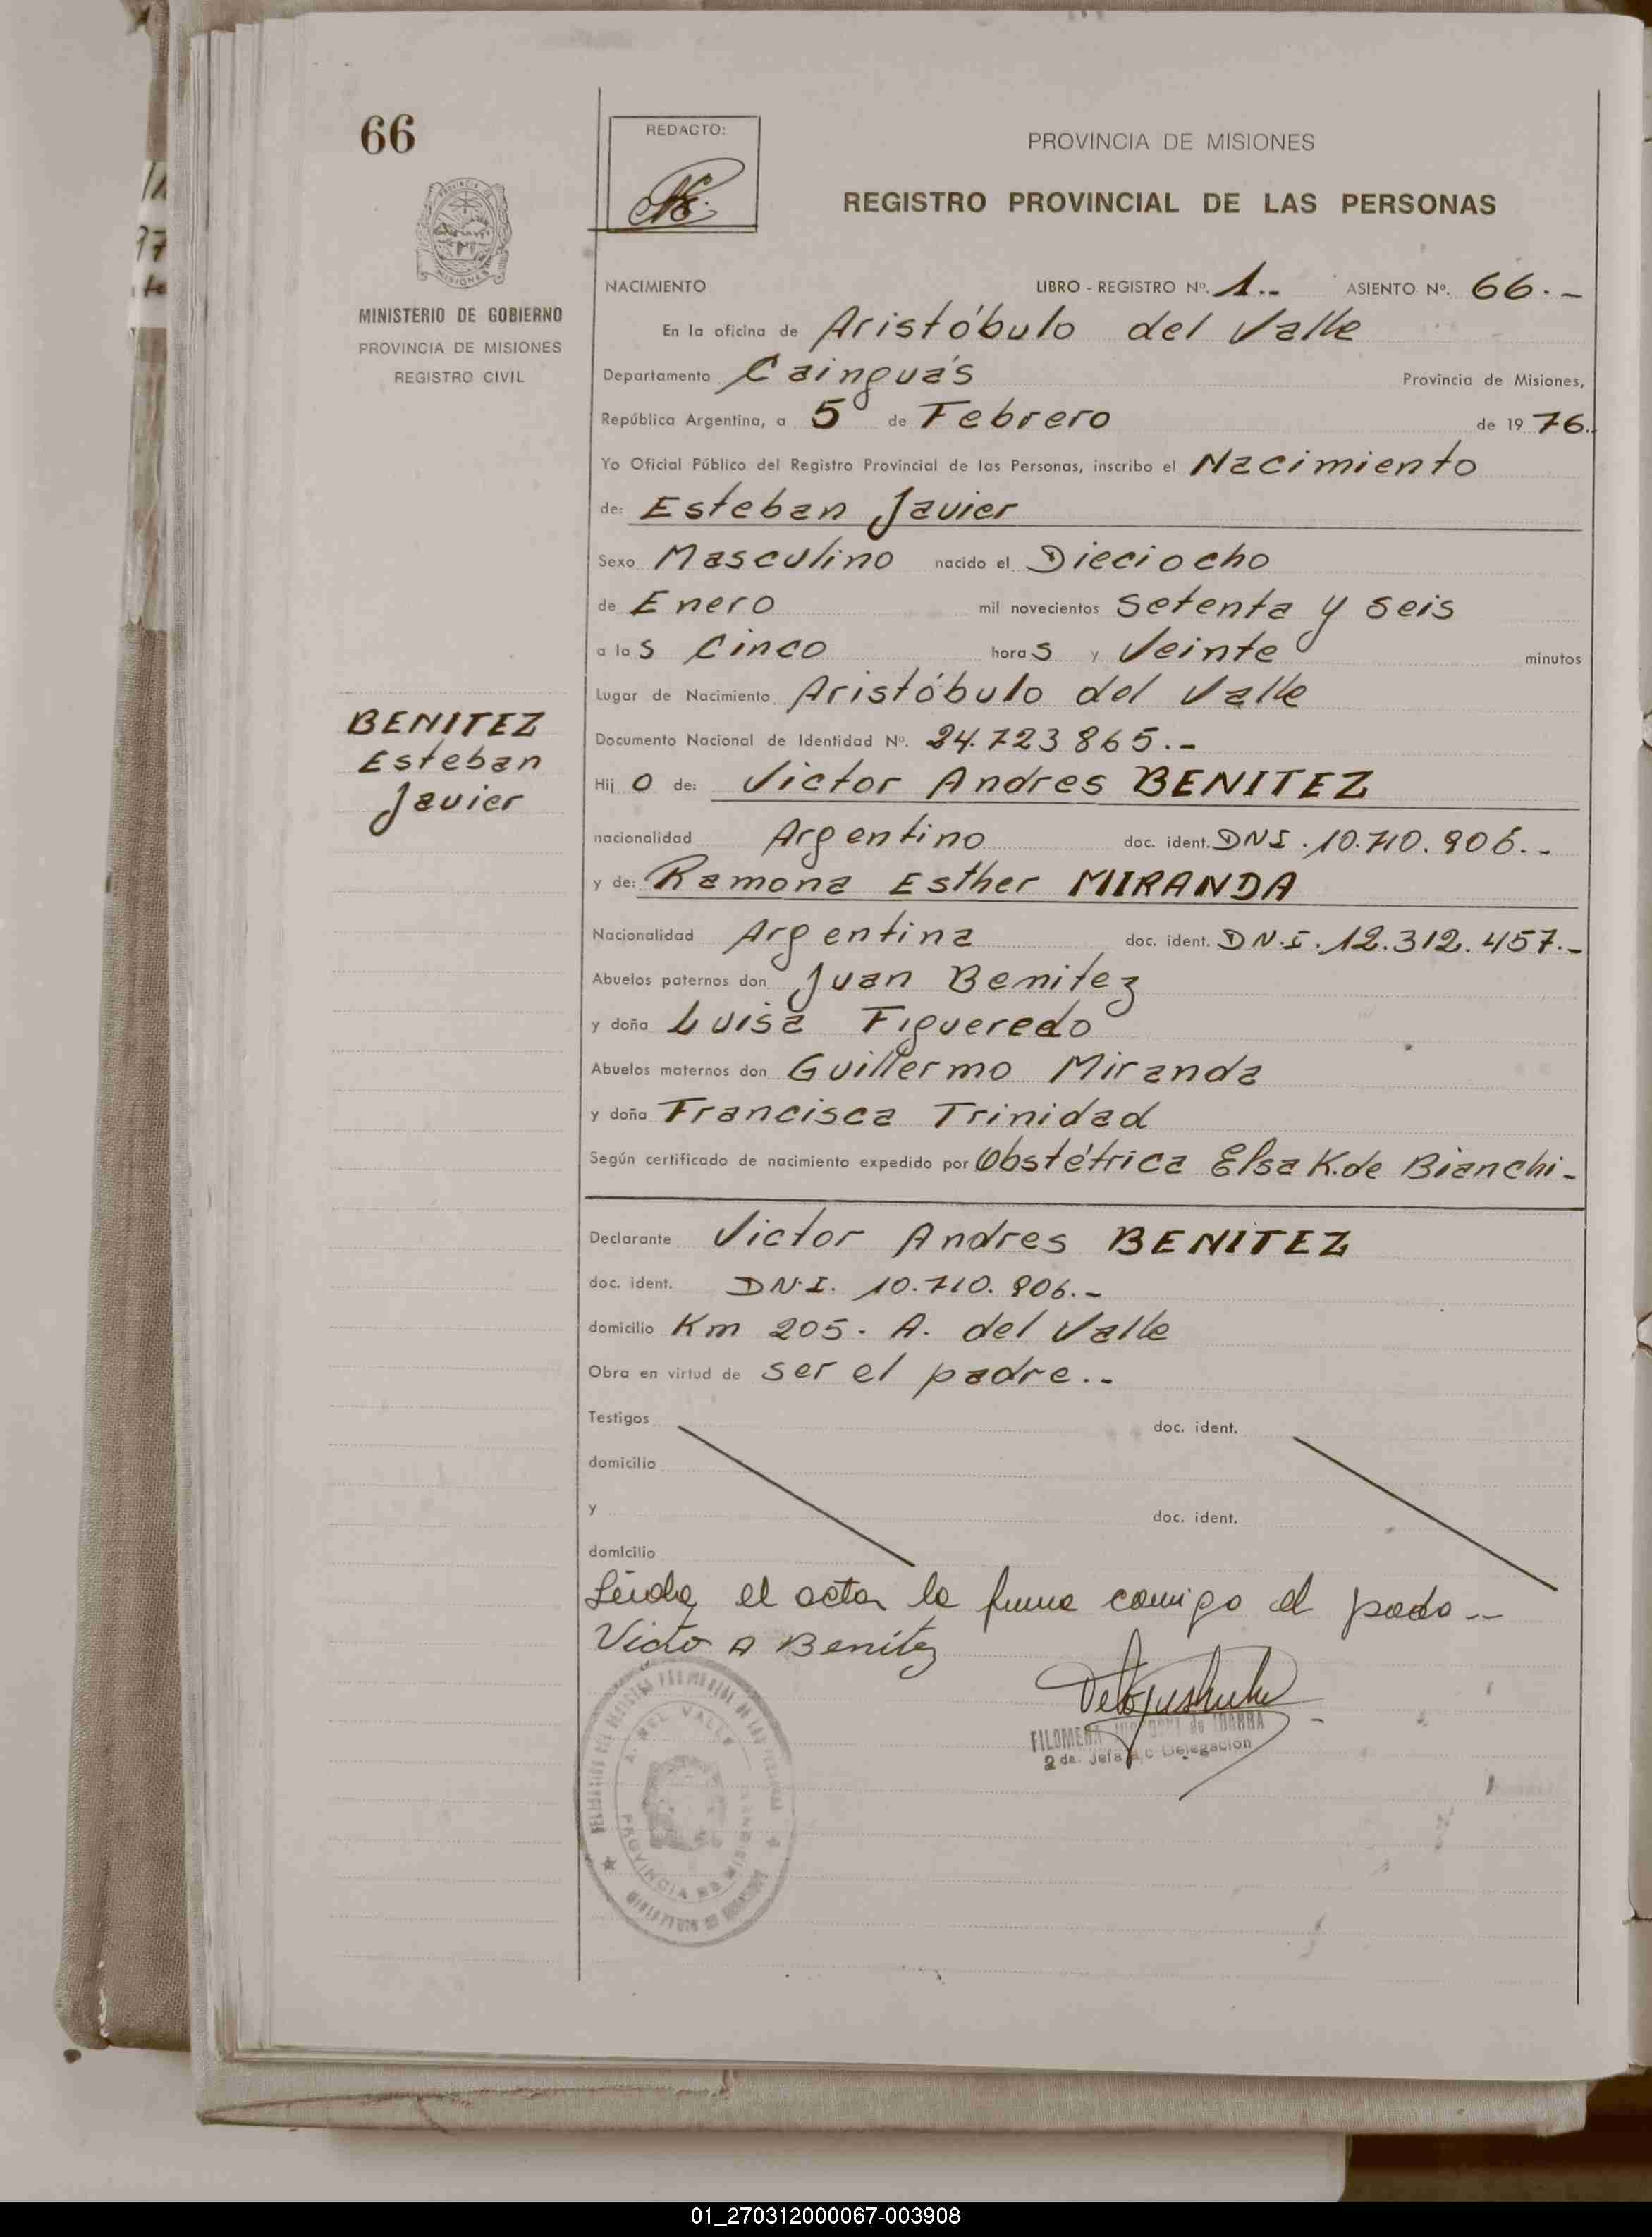 66
REDACTO:
PROVINCIA DE MISIONES
REGISTRO PROVINCIAL DE LAS PERSONAS
MINISTERIO DE GOBIERNO
PROVINCIA DE MISIONES
REGISTRO CIVIL
NACIMIENTO LIBRO - REGISTRO Nº. 1.- ASIENTO Nº. 66.-
En la oficina de Aristóbulo del Valle
Departamento Cainguás Provincia de Misiones,
República Argentina, a 5 de Febrero de 19 76.
Yo Oficial Público del Registro Provincial de las Personas, inscribo el Nacimiento
de: Esteban Javier
Sexo Masculino nacido el Dieciocho
de Enero mil novecientos setenta y seis
a las Cinco horas y Veinte minutos
Lugar de Nacimiento Aristóbulo del Valle
BENITEZ
Esteban
Javier
Documento Nacional de Identidad Nº. 24.723865.-
Hijo de: Victor Andres BENITEZ
nacionalidad Argentino doc. ident. DNI. 10.710.906.-
y de: Ramona Esther MIRANDA
Nacionalidad Argentina doc. ident. DN.I. 12.312.457.-
Abuelos paternos don Juan Benitez
y doña Luisa Figueredo
Abuelos maternos don Guillermo Miranda
y doña Francisca Trinidad
Según certificado de nacimiento expedido por Obstétrica Elsa K. de Bianchi-
Declarante Victor Andres BENITEZ
doc. ident. DN.I. 10.710.906.-
domicilio Km 205. A. del Valle
Obra en virtud de ser el padre..
Testigos doc. ident.
domicilio
y doc. ident.
domicilio
Leída el acta la firma conmigo el padre --
Victo A Benitez
FILOMENA de IBARRA
2da. Jefa de Delegacion
A. DEL VALLE
PROVINCIA DE MISIONES
01_270312000067-003908